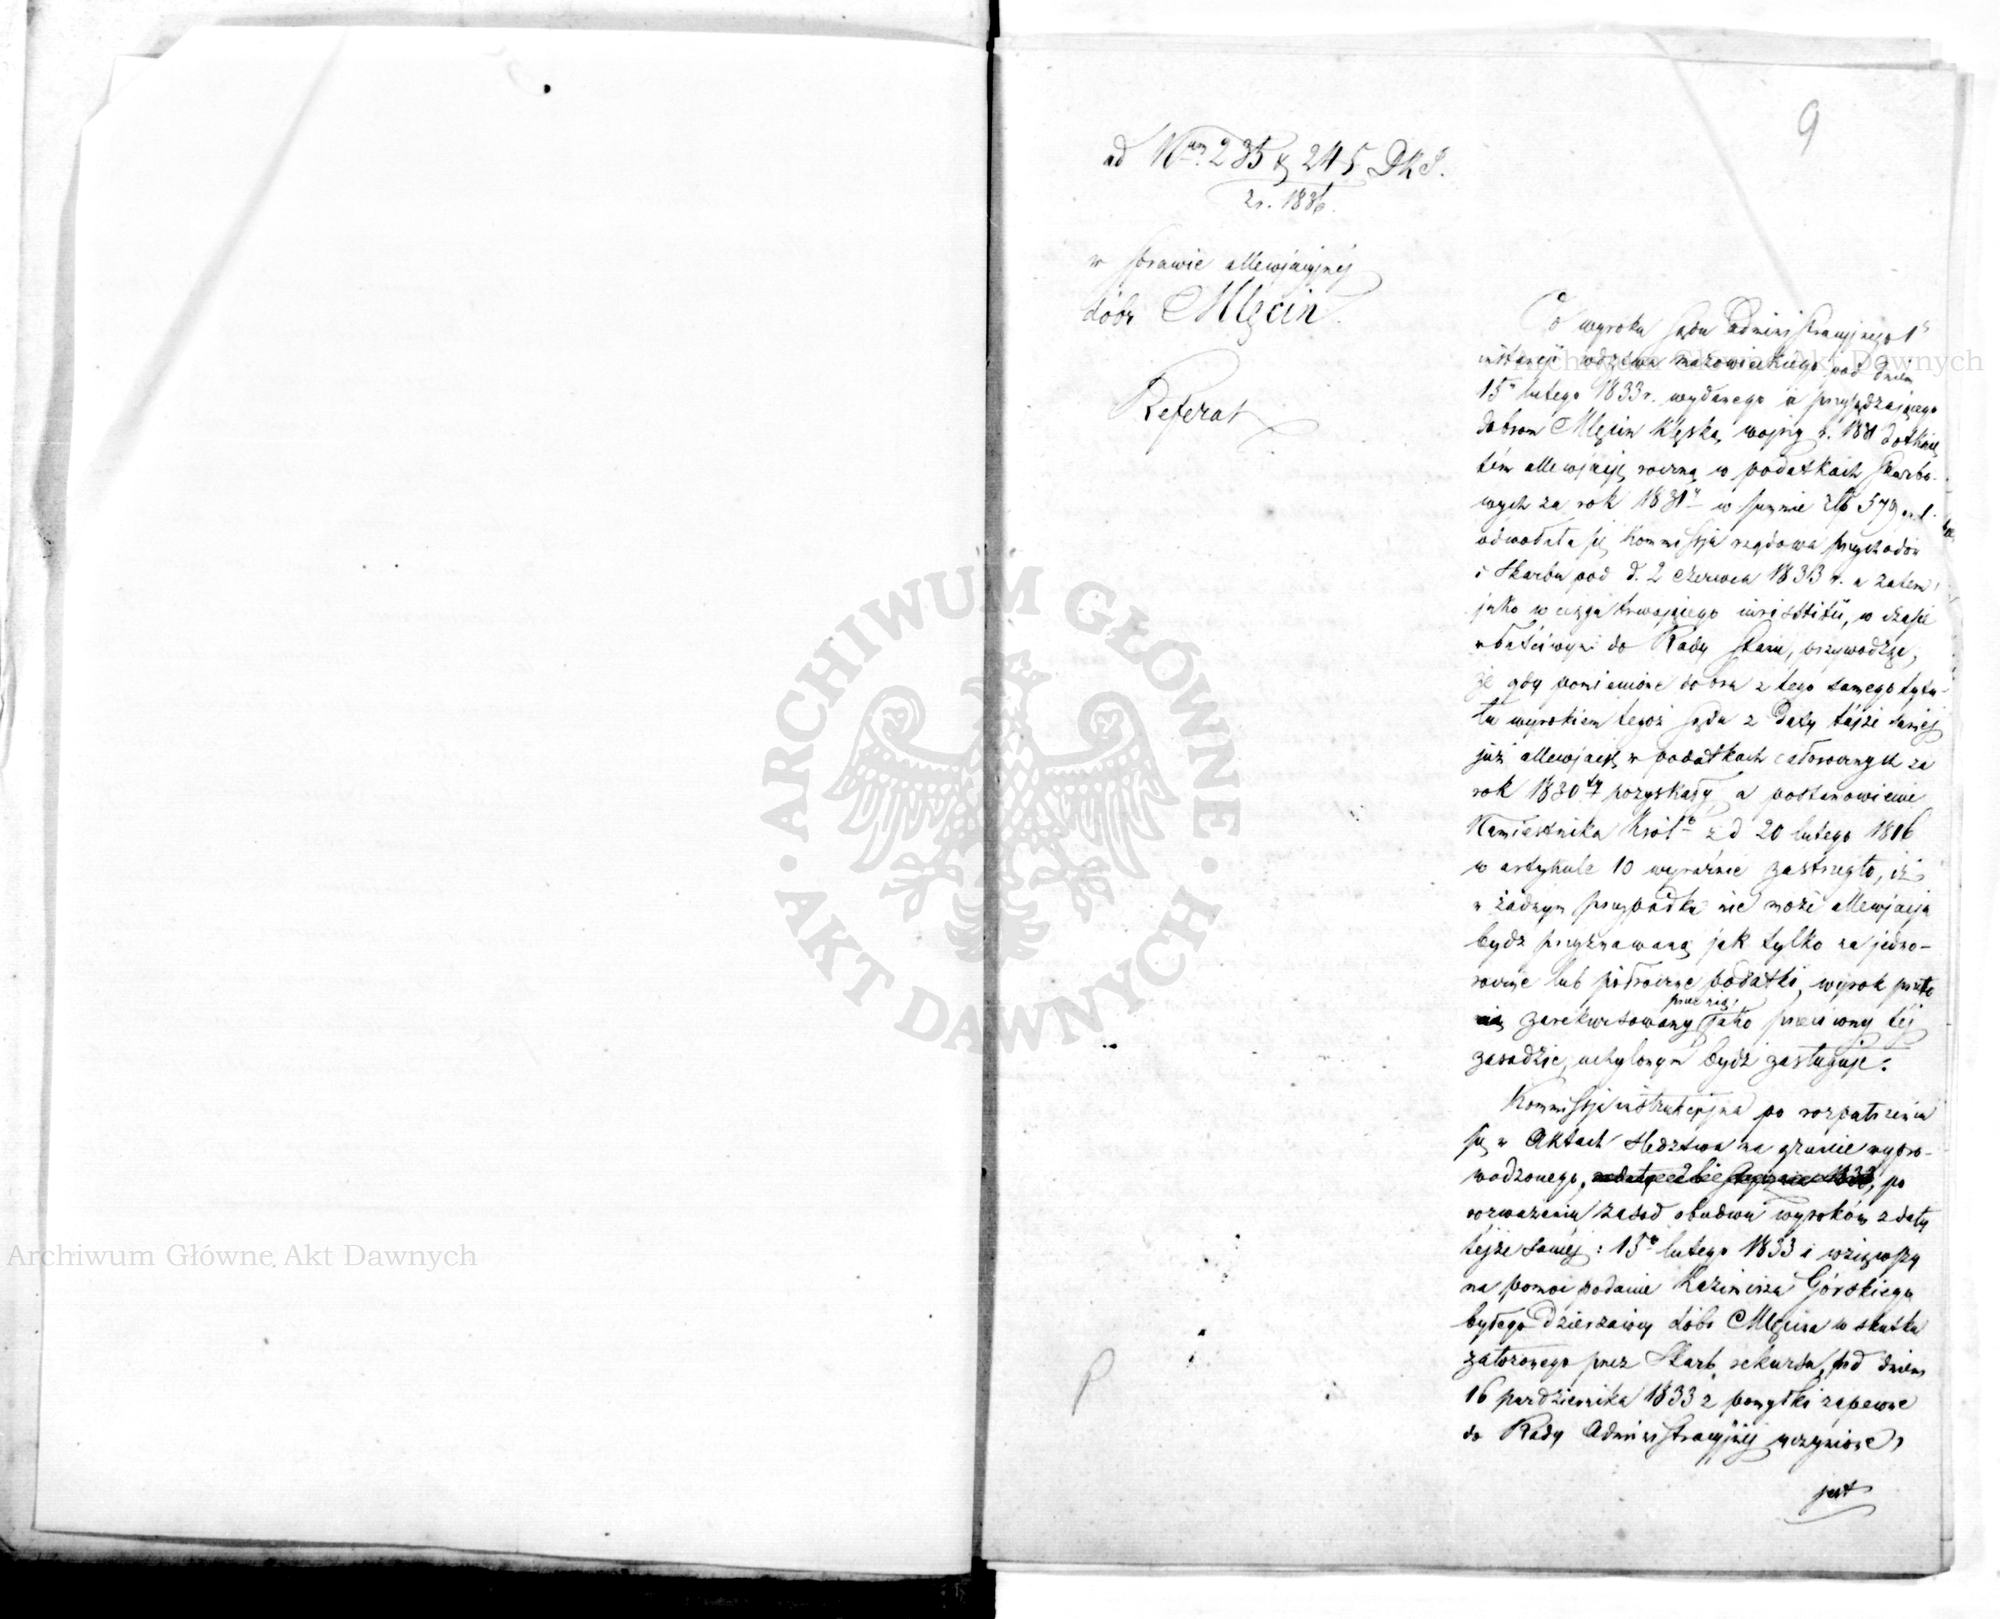 9
ad Num 235 & 245 DRS.
z r. 1836.
w sprawie allewjacyjnej
dóbr Mlęcin.
Referat
Od wyroku Sądu Administracyjnego 1ej
instancji wdztwa mazowieckiego pod dniem
15 lutego 1833 r. wydanego a przysądzającego
dobrom Mlęcin klęską wojny r. 1831 dotknię-
tém allewjację roczną w podatkach skarbo-
wych za rok 1831 w summie złp 579 gr 1.
odwołała się Kommissja rządowa przychodów
i Skarbu pod d. 2 czerwca 1833 r. a zatem,
jako w ciągu trwającego
właściwym do Rady Stanu, przywodząc,
że gdy pomienione dobra z tego samego tytu-
łu wyrokiem tegoż Sądu z daty tejże samej
już allewjację w podatkach całorocznych za
rok 1830 pozyskały, a postanowienie
Namiestnika Król. z d 20 lutego 1816
w artykule 10 wyraźnie zastrzegło, iż
w żadnym przypadku nie może allewjacja
bydź przyznawaną jak tylko za jedno-
roczne lub półroczne podatki, wyrok przeto
zarekursowany przez nią, jako przeciwny tej
zasadzie, uchylonym bydź zasługuje.
Kommissja instrukcyjna po rozpatrzeniu
się w Aktach śledztwa na gruncie wypro-
wadzonego, po
rozważeniu zasad obudwu wyroków z daty
tejże samej: 15 lutego 1833 i wziąwszy
na pomoc podanie Kazimierza Górskiego
byłego Dzierżawcy dóbr Mlęcina w skutku
założonego przez Skarb rekursu, pod dniem
16 października 1833 z pomyłki zapewne
do Rady Administracyjnej uczynione,
jest
Archiwum Główne Akt Dawnych
Archiwum Główne Akt Dawnych
ARCHIWUM GŁÓWNE AKT DAWNYCH